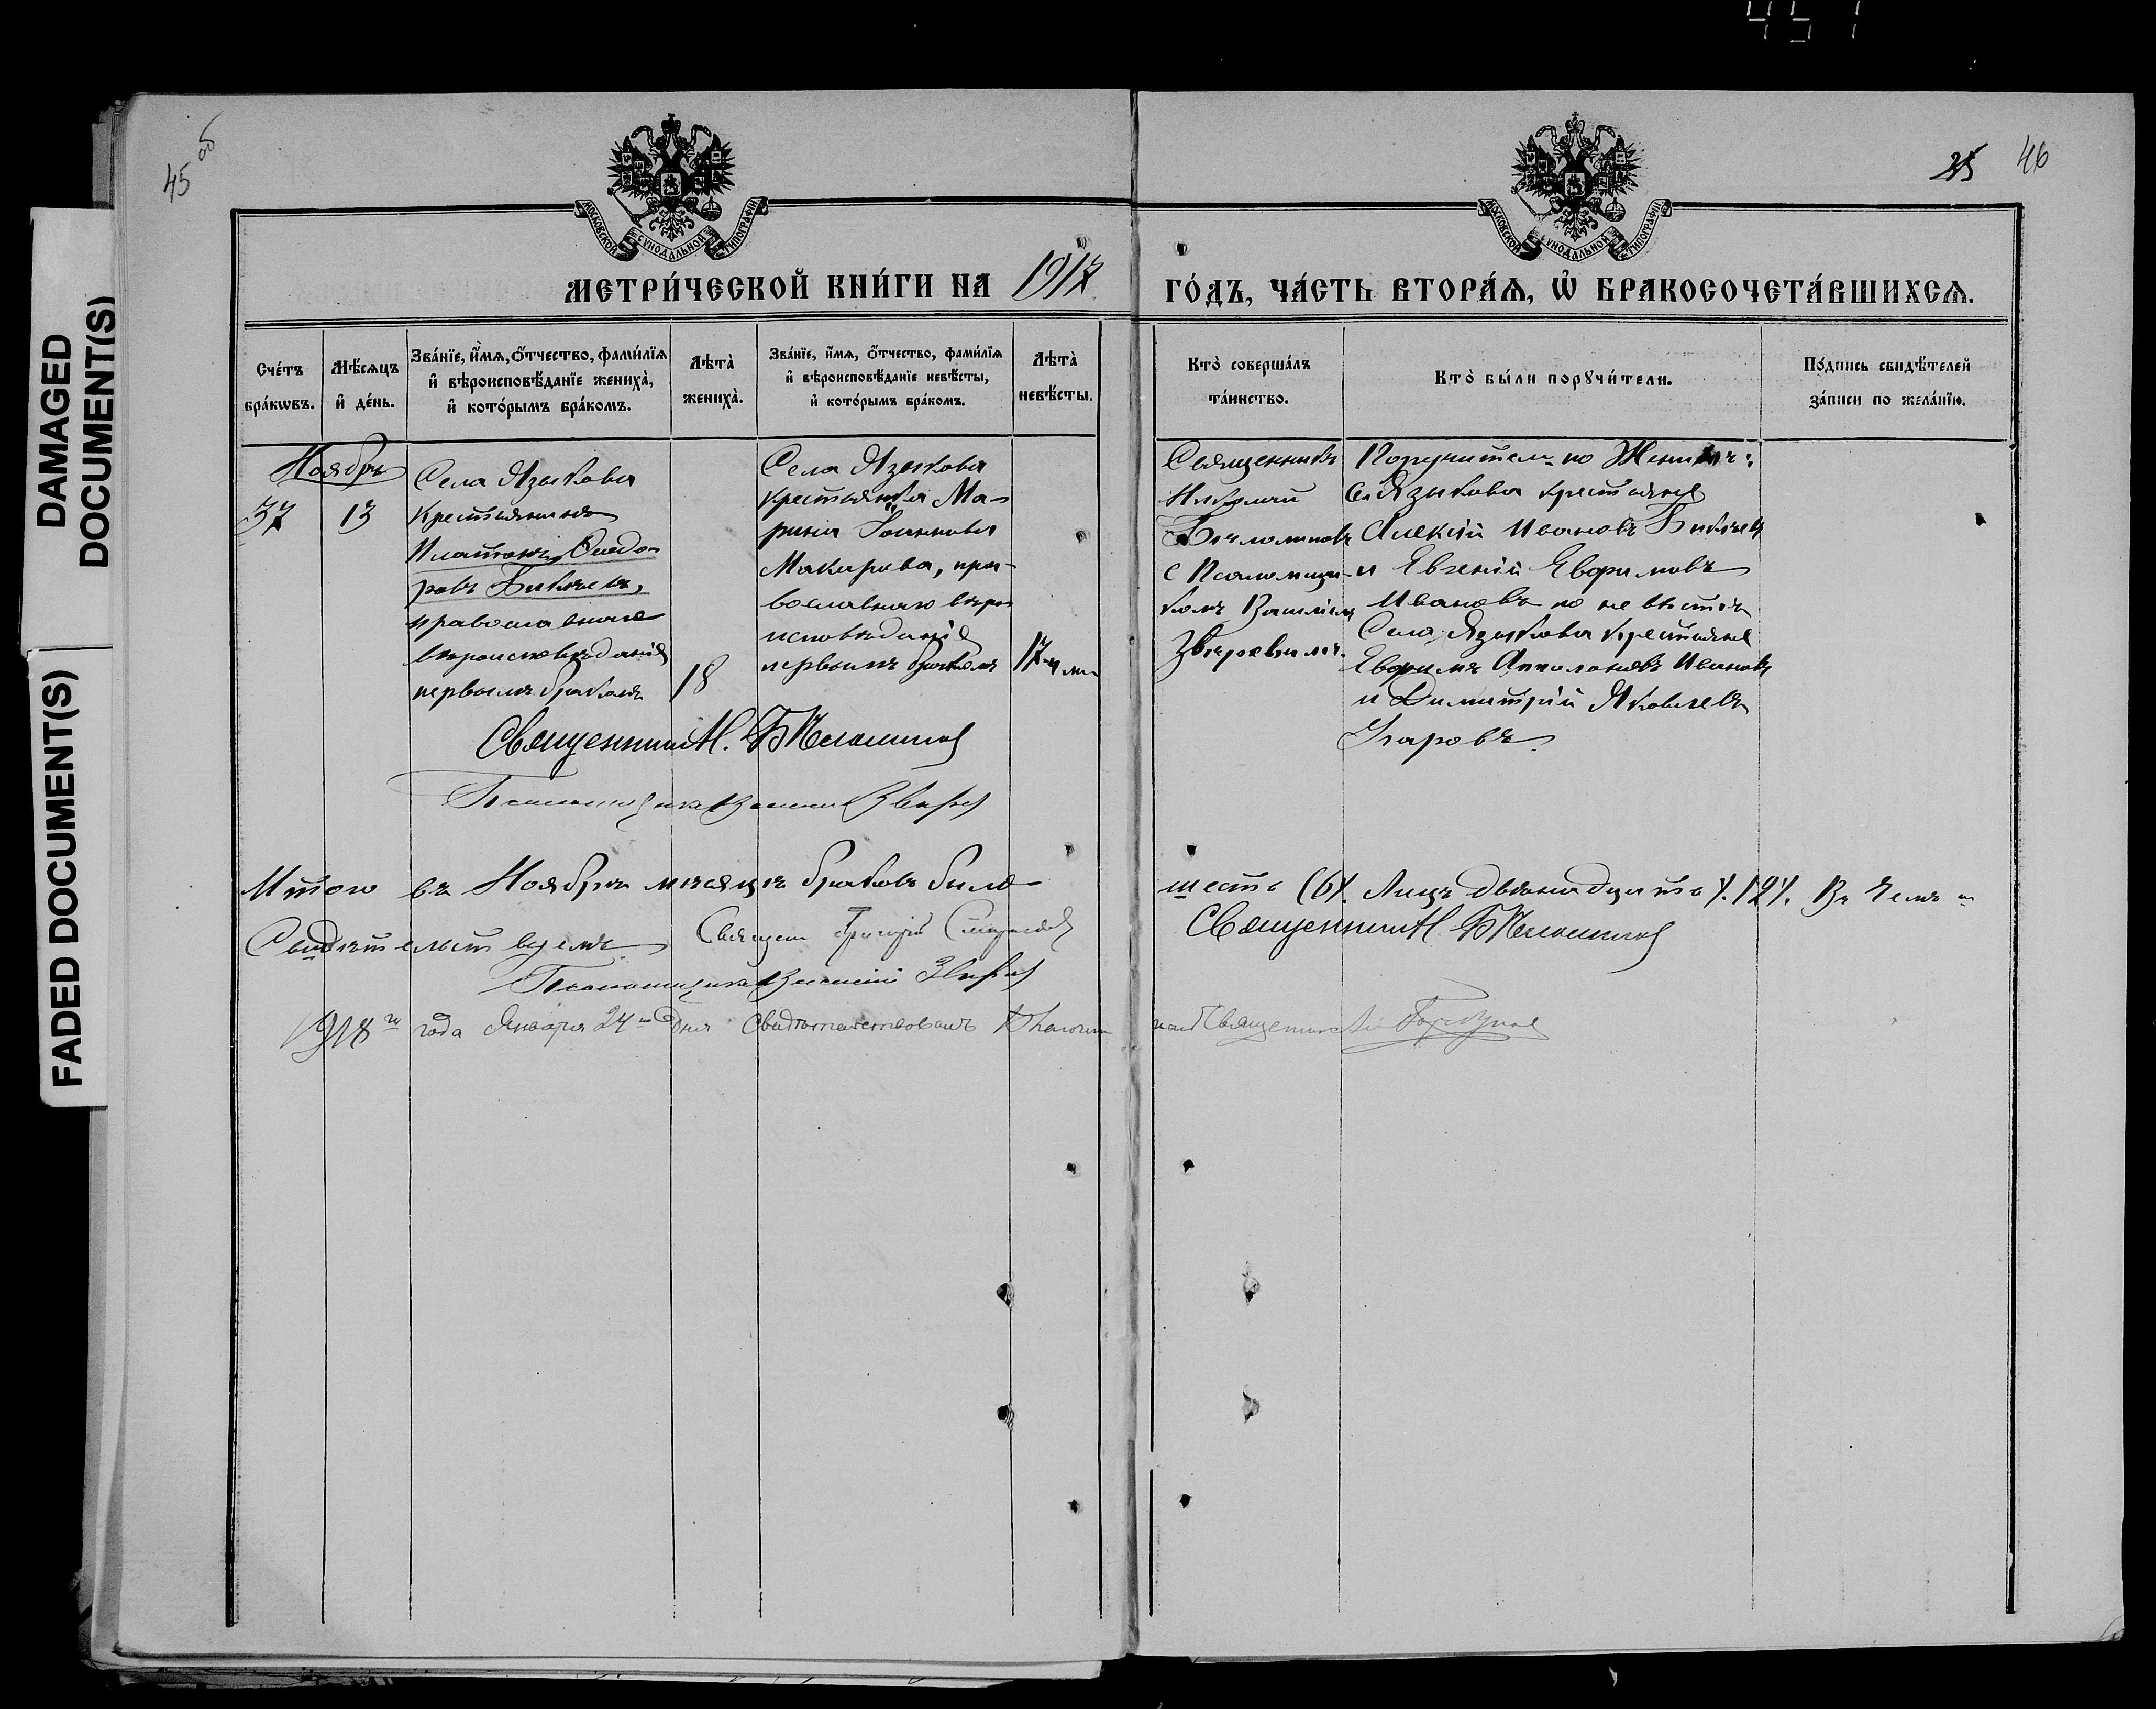 451
DAMAGED
DOCUMENT(S)
FADED DOCUMENT(S)
45 об
25 46
МОСКОВСКОЙ СѴНОДАЛЬНОЙ ТИПОГРАФІИ
МОСКОВСКОЙ СѴНОДАЛЬНОЙ ТИПОГРАФІИ
МЕТРИ́ЧЕСКОЙ КНИ́ГИ НА 1917 ГО́ДЪ, ЧА́СТЬ ВТОРА́Ѧ, Ѽ БРАКОСОЧЕТА́ВШИХСѦ.
Сче́тъ
бра́кѡвъ.
Мѣ́сѧцъ
и҆ де́нь.
Зва́нїе, и҆́мѧ, ѻ҆́тчество, фами́лїѧ
и҆ вѣроисповѣ́данїе жениха̀,
и҆ кото́рымъ бра́комъ.
Лѣта̀
жениха̀.
Зва́нїе, и҆́мѧ, ѻ҆́тчество, фами́лїѧ
и҆ вѣроисповѣ́данїе невѣ́сты,
и҆ кото́рымъ бра́комъ.
Лѣта̀
невѣ́сты.
Кто̀ соверша́лъ
та́инство.
Кто̀ бы́ли порꙋчи́тели.
По́дпись свидѣ́телей
за́писи по жела́нїю.
Ноябрь
37
13
Села Языкова
крестьянинъ
Платонъ Ѳеодо-
ровъ Бикѣевъ,
православнаго
вѣроисповѣданія
первымъ бракомъ
18
Села Языкова
крестьянка Ма-
рина Іоаннова
Макарова, пра-
вославнаго вѣро
исповѣданія
первымъ бракомъ
17
Священникъ
Николай
с Псаломщи-
комъ Василіем
Звѣревымъ.
Поручители по Женихѣ:
Села Языкова крестьяне
Алексій Ивановъ Бикѣевъ
и Евгеній Евфимовъ
Ивановъ по невѣстѣ
Села Языкова крестьяне
Евфимъ Ивановъ
и Димитрій Яковлевъ
Священник Н.
Псаломщикъ Василій Звѣрев
Итого въ Ноябрѣ мѣсяцѣ браковъ было шесть (6). Лицъ двѣнадцать (12). Въ чемъ и
Свидѣтельствуемъ Священ Григорій
Священник Н.
Псаломщикъ Василій Звѣрев
1918 го года Января 24 го дня Свидѣтельствовалъ Священник